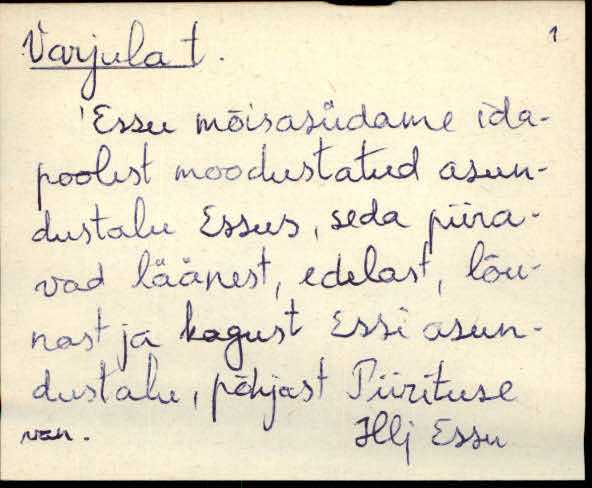 Varjula t. 1
'Essu mõisasüdame ida-
poolest moodustatud asun-
dustalu Essus, seda piira-
vad läänest, edelast, lõu-
nast ja kagust Essi asun-
dustalu, põhjast Piirituse
van. Hlj Essu